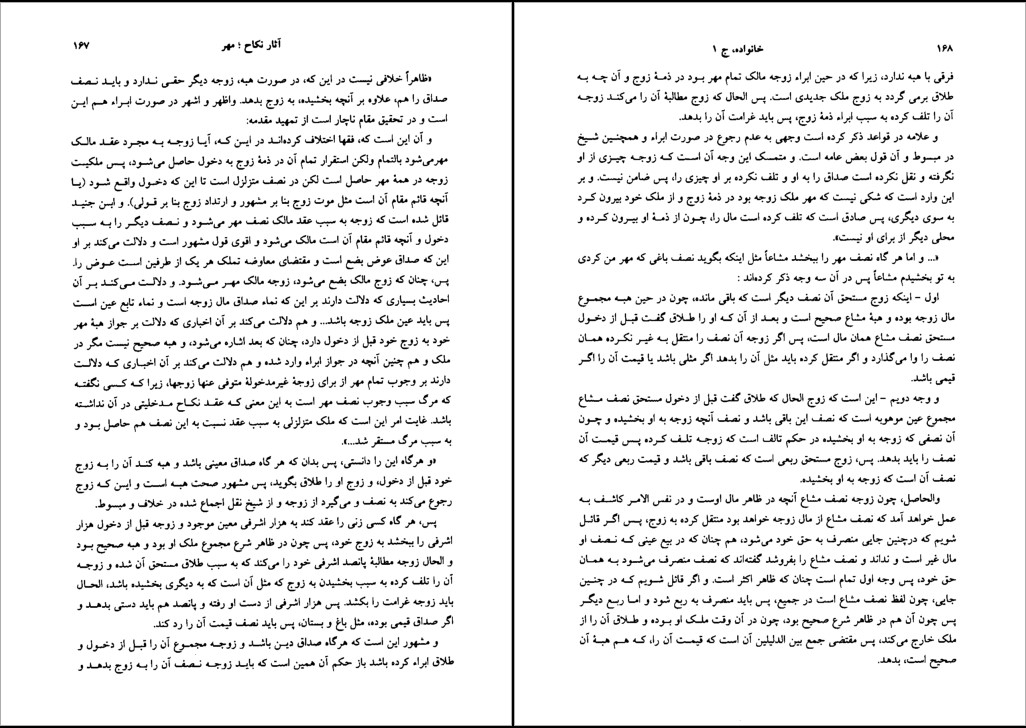 آثار نکاح ؛ مهر ۱۶۷
«ظاهراً خلافی نیست در این که، در صورت هبه، زوجه دیگر حقی ندارد و باید نصف
صداق را هم، علاوه بر آنچه بخشیده، به زوج بدهد. واظهر و اشهر در صورت ابراء هم این
است و در تحقیق مقام ناچار است از تمهید مقدمه:
و آن این است که، فقها اختلاف کرده‌اند در این که، آیا زوجه به مجرد عقد مالک
مهرمی‌شود بالتمام ولکن استقرار تمام آن در ذمهٔ زوج به دخول حاصل می‌شود، پس ملکیت
زوجه در همهٔ مهر حاصل است لکن در نصف متزلزل است تا این که دخول واقع شود (یا
آنچه قائم مقام آن است مثل موت زوج بنا بر مشهور و ارتداد زوج بنا بر قولی). و ابن جنید
قائل شده است که زوجه به سبب عقد مالک نصف مهر می‌شود و نصف دیگر را به سبب
دخول و آنچه قائم مقام آن است مالک می‌شود و اقوی قول مشهور است و دلالت می‌کند بر او
این که صداق عوض بضع است و مقتضای معاوضه تملک هر یک از طرفین است عوض را.
پس، چنان که زوج مالک بضع می‌شود، زوجه مالک مهر می‌شود. و دلالت می‌کند بر آن
احادیث بسیاری که دلالت دارند بر این که نماء صداق مال زوجه است و نماء تابع عین است
پس باید عین ملک زوجه باشد... و هم دلالت می‌کند بر آن اخباری که دلالت بر جواز هبهٔ مهر
خود به زوج خود قبل از دخول دارد، چنان که بعد اشاره می‌شود، و هبه صحیح نیست مگر در
ملک و هم چنین آنچه در جواز ابراء وارد شده و هم دلالت می‌کند بر آن اخباری که دلالت
دارند بر وجوب تمام مهر از برای زوجهٔ غیرمدخولهٔ متوفی عنها زوجها، زیرا که کسی نگفته
که مرگ سبب وجوب نصف مهر است به این معنی که عقد نکاح مدخلیتی در آن نداشته
باشد. غایت امر این است که ملک متزلزلی به سبب عقد نسبت به این نصف هم حاصل بود و
به سبب مرگ مستقر شد...».
«و هرگاه این را دانستی، پس بدان که هر گاه صداق معینی باشد و هبه کند آن را به زوج
خود قبل از دخول، و زوج او را طلاق بگوید، پس مشهور صحت هبه است و این که زوج
رجوع می‌کند به نصف و می‌گیرد از زوجه و از شیخ نقل اجماع شده در خلاف و مبسوط.
پس، هر گاه کسی زنی را عقد کند به هزار اشرفی معین موجود و زوجه قبل از دخول هزار
اشرفی را ببخشد به زوج خود، پس چون در ظاهر شرع مجموع ملک او بود و هبه صحیح بود
و الحال زوجه مطالبهٔ پانصد اشرفی خود را می‌کند که به سبب طلاق مستحق آن شده و زوجه
آن را تلف کرده به سبب بخشیدن به زوج که مثل آن است که به دیگری بخشیده باشد، الحال
باید زوجه غرامت را بکشد. پس هزار اشرفی از دست او رفته و پانصد هم باید دستی بدهد و
اگر صداق قیمی بوده، مثل باغ و بستان، پس باید نصف قیمت آن را رد کند.
و مشهور این است که هرگاه صداق دین باشد و زوجه مجموع آن را قبل از دخول و
طلاق ابراء کرده باشد باز حکم آن همین است که باید زوجه نصف آن را به زوج بدهد و
خانواده، ج ۱ ۱۶۸
فرقی با هبه ندارد، زیرا که در حین ابراء زوجه مالک تمام مهر بود در ذمهٔ زوج و آن چه به
طلاق برمی گردد به زوج ملک جدیدی است. پس الحال که زوج مطالبهٔ آن را می‌کند زوجه
آن را تلف کرده به سبب ابراء ذمهٔ زوج، پس باید غرامت آن را بدهد.
و علامه در قواعد ذکر کرده است وجهی به عدم رجوع در صورت ابراء و همچنین شیخ
در مبسوط و آن قول بعض عامه است. و متمسک این وجه آن است که زوجه چیزی از او
نگرفته و نقل نکرده است صداق را به او و تلف نکرده بر او چیزی را، پس ضامن نیست. و بر
این وارد است که شکی نیست که مهر ملک زوجه بود در ذمهٔ زوج و از ملک خود بیرون کرد
به سوی دیگری، پس صادق است که تلف کرده است مال را، چون از ذمهٔ او بیرون کرده و
محلی دیگر از برای او نیست».
«... و اما هر گاه نصف مهر را ببخشد مشاعاً مثل اینکه بگوید نصف باغی که مهر من کردی
به تو بخشیدم مشاعاً پس در آن سه وجه ذکر کرده‌اند :
اول – اینکه زوج مستحق آن نصف دیگر است که باقی مانده، چون در حین هبه مجموع
مال زوجه بوده و هبهٔ مشاع صحیح است و بعد از آن که او را طلاق گفت قبل از دخول
مستحق نصف مشاع همان مال است، پس اگر زوجه آن نصف را منتقل به غیر نکرده همان
نصف را وا می‌گذارد و اگر منتقل کرده باید مثل آن را بدهد اگر مثلی باشد یا قیمت آن را اگر
قیمی باشد.
و وجه دویم – این است که زوج الحال که طلاق گفت قبل از دخول مستحق نصف مشاع
مجموع عین موهوبه است که نصف این باقی باشد و نصف آنچه زوجه به او بخشیده و چون
آن نصفی که زوجه به او بخشیده در حکم تالف است که زوجه تلف کرده پس قیمت آن
نصف را باید بدهد. پس، زوج مستحق ربعی است که نصف باقی باشد و قیمت ربعی دیگر که
نصف آن است که زوجه به او بخشیده.
والحاصل، چون زوجه نصف مشاع آنچه در ظاهر مال اوست و در نفس الامر کاشف به
عمل خواهد آمد که نصف مشاع از مال زوجه خواهد بود منتقل کرده به زوج، پس اگر قائل
شویم که درچنین جایی منصرف به حق خود می‌شود، هم چنان که در بیع عینی که نصف او
مال غیر است و نداند و نصف مشاع را بفروشد گفته‌اند که نصف منصرف می‌شود به همان
حق خود، پس وجه اول تمام است چنان که ظاهر اکثر است. و اگر قائل شویم که در چنین
جایی، چون لفظ نصف مشاع است در جمیع، پس باید منصرف به ربع شود و اما ربع دیگر
پس چون آن هم در ظاهر شرع صحیح بود، چون در آن وقت ملک او بوده و طلاق آن را از
ملک خارج می‌کند، پس مقتضی جمع بین الدلیلین آن است که قیمت آن را، که هم هبهٔ آن
صحیح است، بدهد.